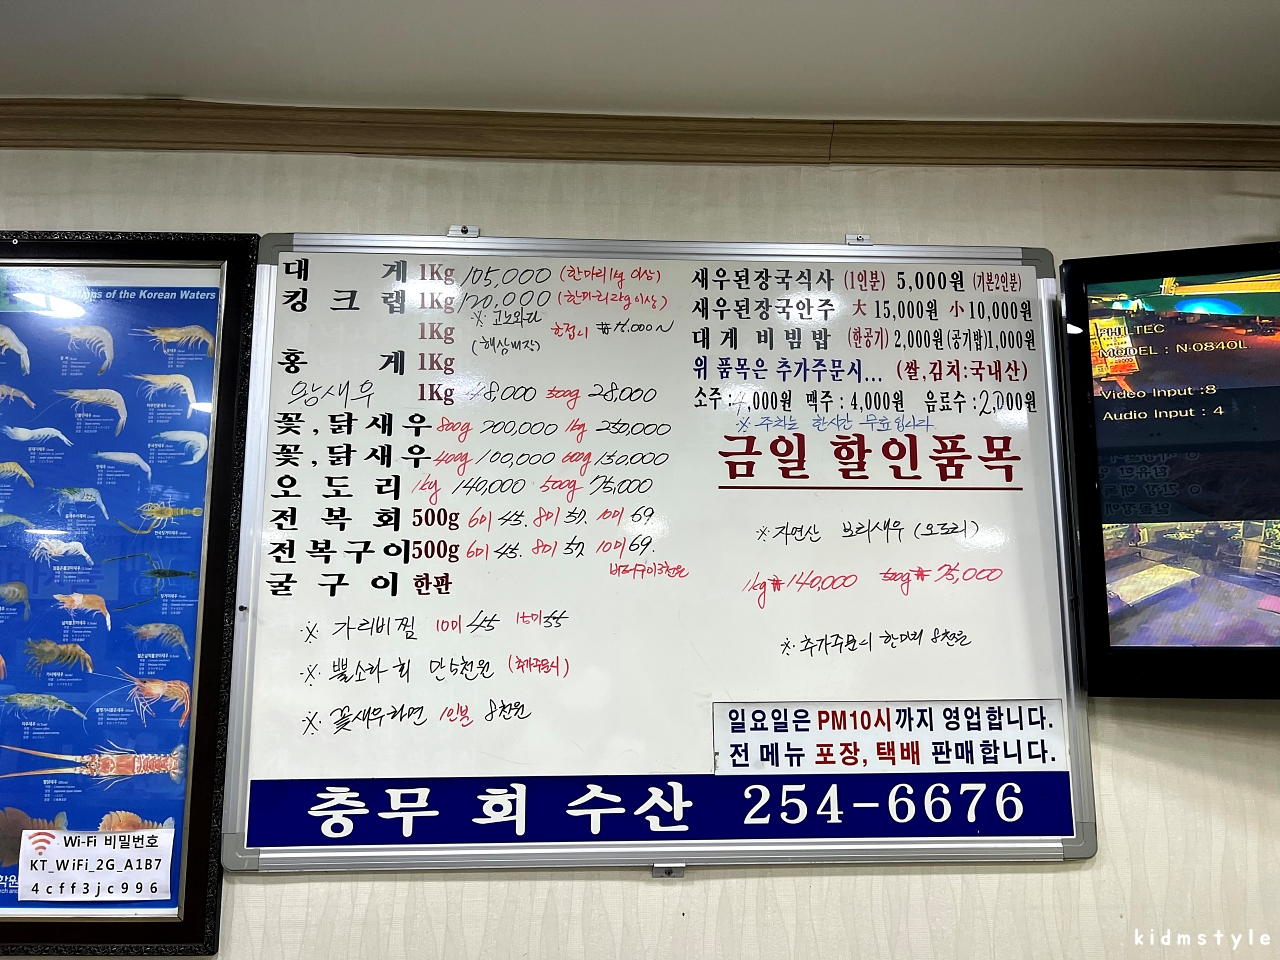 대 게 1Kg 105,000 (한마리1kg 이상)
킹 크 랩 1Kg 120,000 (한마리2kg이상)
※ 고노와다
1Kg (해삼내장) 한접시
홍 게 1Kg
왕새우 1Kg 48,000 500g 28,000
꽃,닭새우 800g 200,000 1kg 250,000
꽃,닭새우 400g 100,000 600g 150,000
오 도 리 1kg 140,000 500g 75,000
전 복 회 500g 6미 45. 8미 57. 10미 69
전복구이 500g 6미 45. 8미 57. 10미 69.
버터구이3천원
굴 구 이 한판
※ 가리비찜 10미 45 15미 55
※ 뿔소라 회 만5천원 (추가주문시)
※ 꽃새우라면 1인분 8천원
새우된장국식사 (1인분) 5,000원 (기본2인분)
새우된장국안주 大 15,000원 小 10,000원
대 게 비 빔 밥 (한공기) 2,000원 (공기밥)1,000원
위 품목은 추가주문시... (쌀,김치:국내산)
소주 : 4,000원 맥주 : 4,000원 음료수 : 2,000원
※ 주차는 한시간 무료입니다
금일 할인품목
※ 자연산 보리새우 (오도리)
1kg ₩140,000 500g ₩75,000
※ 추가주문시 한마리 8천원
일요일은 PM10시까지 영업합니다.
전 메뉴 포장, 택배 판매합니다.
충무 회 수산 254-6676
of the Korean Waters
Wi-Fi 비밀번호
KT_WiFi_2G_A1B7
4cff3jc996
MODEL : N-0840L
Video Input :8
Audio Input : 4
kidmstyle